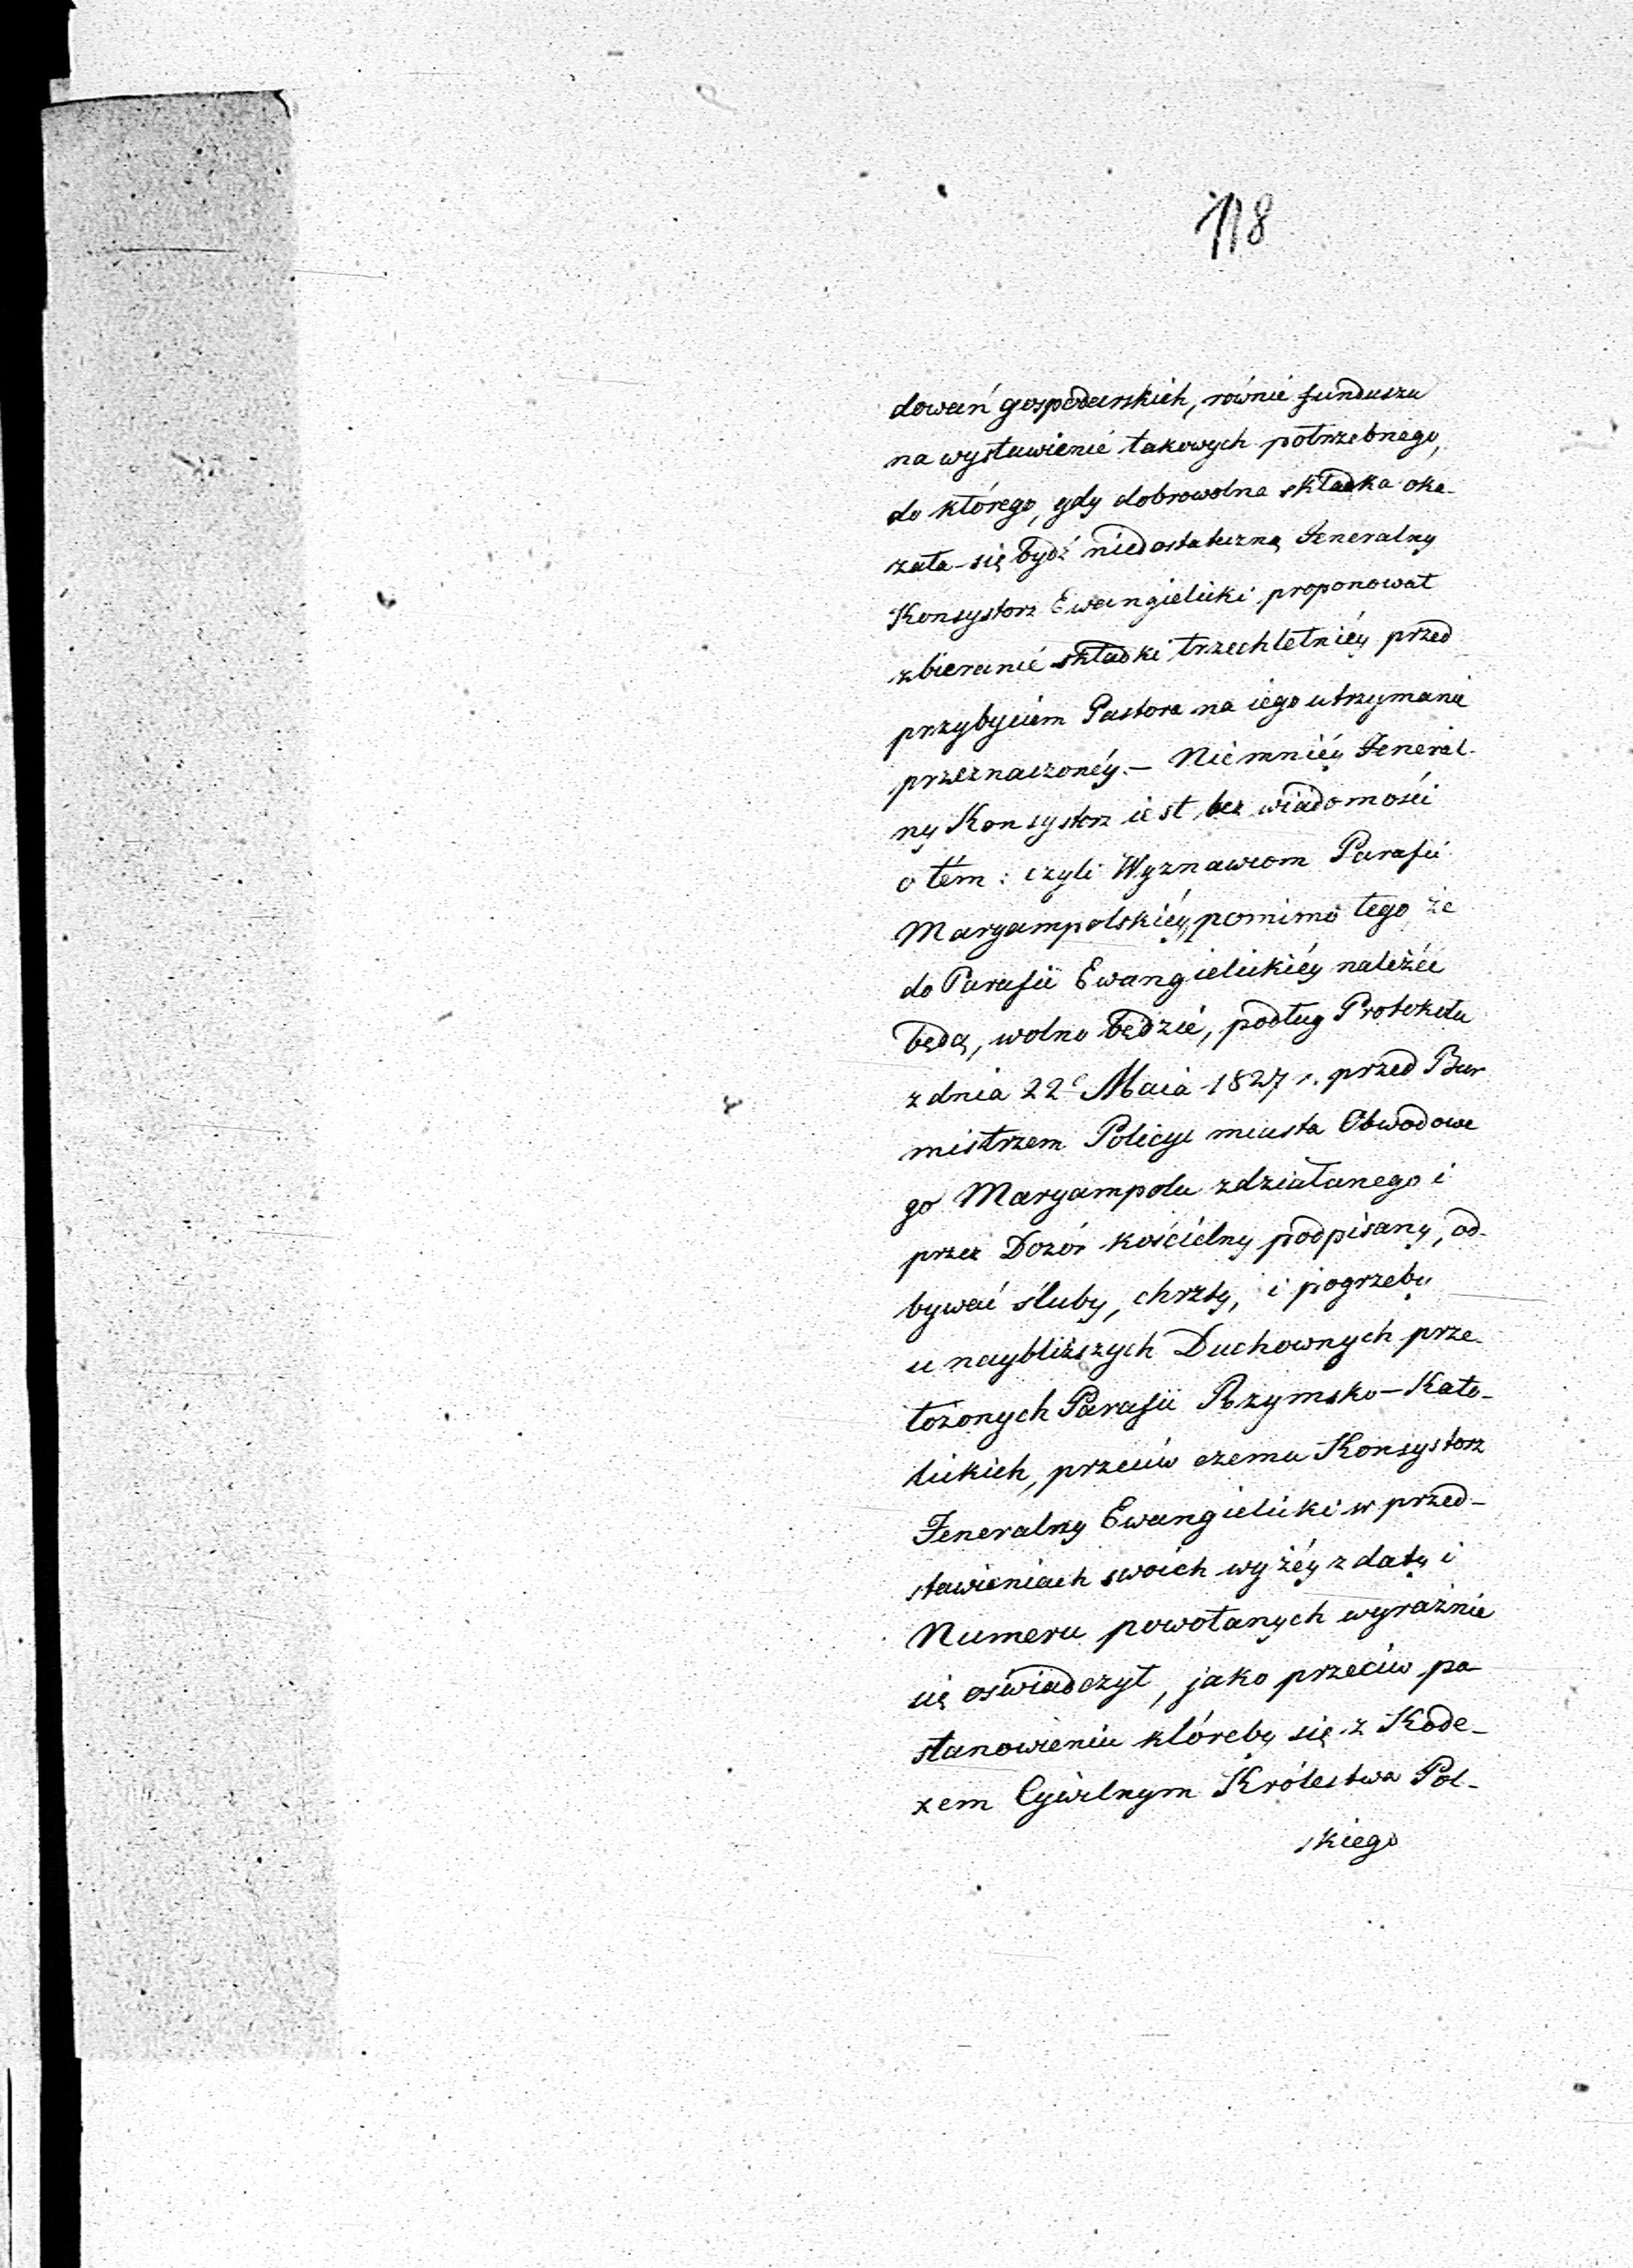 118
dowań gospodarskich, równie funduszu
na wystawienie takowych potrzebnego,
do którego, gdy dobrowolna składka oka-
zała się bydź niedostateczną Jeneralny
Konsystorz Ewangielicki proponował
zbieranie składki trzechletniéy przed
przybyciem Pastora na iego utrzymanie
przeznaczonéy. — Niemniéy Jeneral-
ny Konsystorz iest bez wiadomości
o tém: czyli Wyznawcom Parafii
Maryampolskiéy, pomimo tego że
do Parafii Ewangielickiéy należéć
będą, wolno będzie, podług Protokułu
z dnia 22º Maia 1827 r. przed Bur
mistrzem Policyi miasta Obwodowe
go Maryampolu zdziałanego i
przez Dozór kościelny podpisany, od-
bywać śluby, chrzty, i pogrzeby
u naybliższych Duchownych prze-
łożonych Parafii Rzymsko-Kato-
lickich, przeciw czemu Konsystorz
Jeneralny Ewangielicki w przed-
stawieniach swoich wyżéy z daty i
Numeru powołanych wyraźnie
się oświadczył, jako przeciw po
stanowieniu któreby się z Kode-
xem Cywilnym Królestwa Pol-
skiego